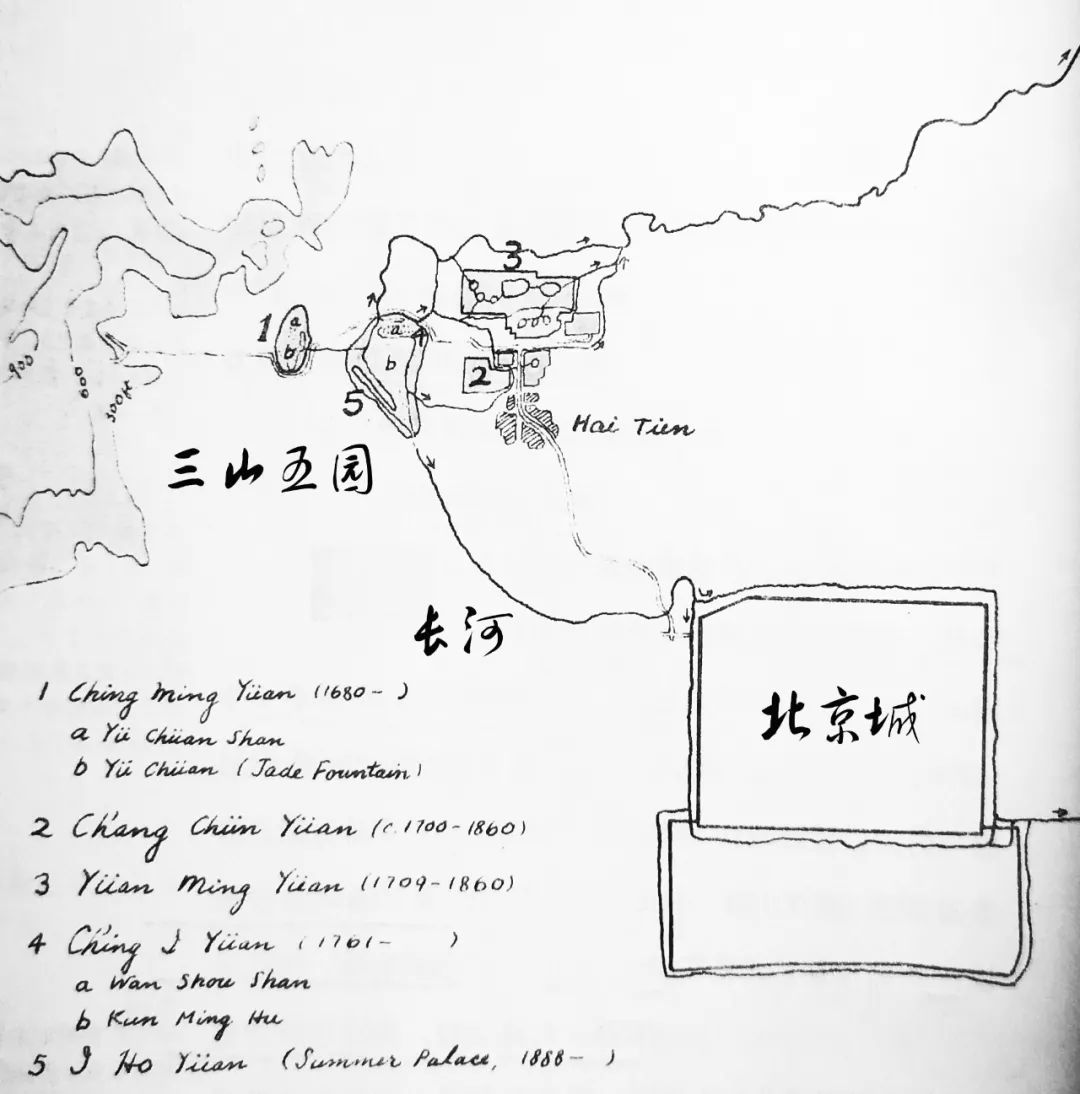 3
1
a
b
a
4
b
2
5
900
300ft
Hai Tien
三山五园
长河
北京城
1 Ching Ming Yüan (1680- )
a Yü Chüan Shan
b Yü Chüan (Jade Fountain)
2 Ch'ang Chün Yüan (c.1700-1860)
3 Yüan Ming Yüan (1709-1860)
4 Ch'ing I Yüan (1761- )
a Wan Shou Shan
b Kun Ming Hu
5 I Ho Yüan (Summer Palace, 1888- )